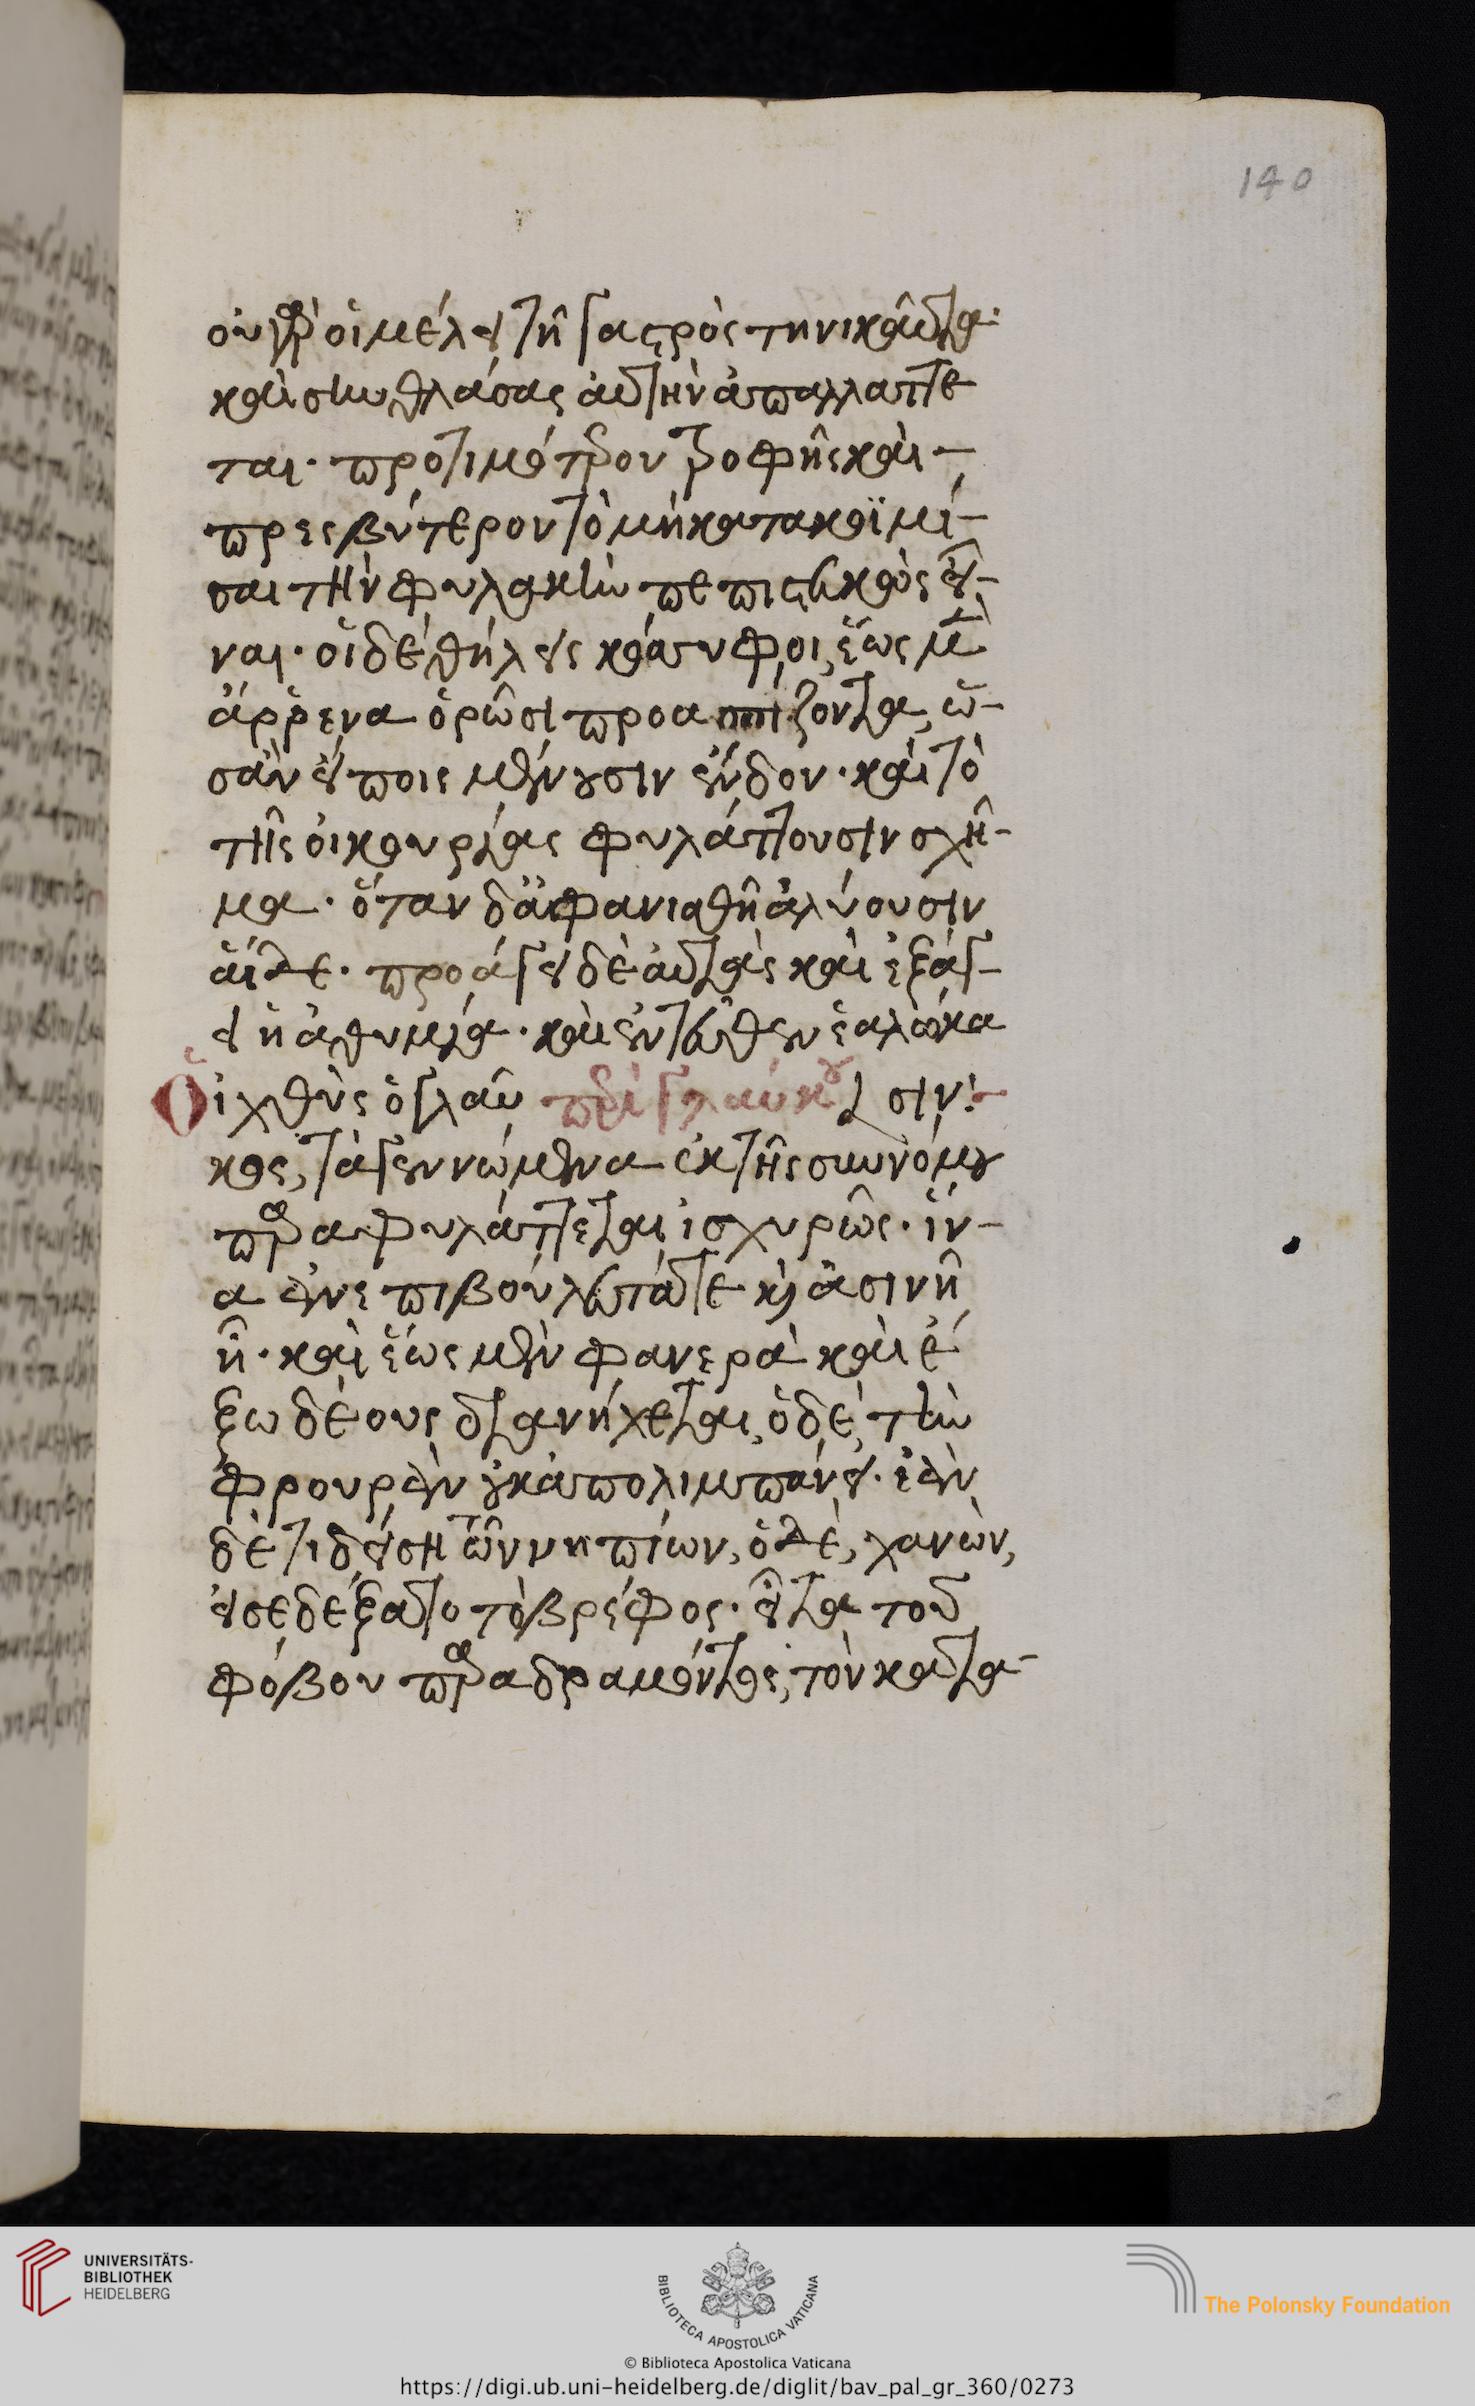 140
οὐ γὰρ οἱ μέλει τῆ γαστρὸς τηνικαῦτα·
καὶ συνθλάσας αὐτὴν ἀπαλλάττε
ται· προτιμότερον τροφῆς καὶ –
πρεσβύτερον τὸ μὴ κατακοιμί–
σαι τὴν φυλακὴν πεπιστευκὼς εἶ–
ναι· οἱ δὲ θήλεις κόσσυφοι, ἕως μὲν
ἄρρενα ὁρῶσι προασπίζοντα, ὡ–
σὰν εἴποις μένουσιν ἔνδον· καὶ τὸ
τῆς οἰκουρίας φυλάττουσιν σχῆ–
μα· ὅταν δ' ἀφανισθῆ ἀλύουσιν
αἵδε· προάγει δὲ αὐτὰς καὶ ἐξάγ–
ει ἡ ἀθυμία· καὶ ἐντεῦθεν ἑαλώκα
σιν:–
περὶ γλαύκου
Ὁ ἰχθὺς ὁ γλαῦ
κος, τὰ γεννώμενα ἐκ τῆς συννόμου
παραφυλάττεται ἰσχυρῶς· ἵν–
α ἀνεπιβούλευτά τε καὶ ἀσινῆ
ἦ· καὶ ἕως μὲν φανερὰ καὶ ἔ
ξω δέους διανήχεται, ὁ δὲ τὴν
φρουρὰν οὐκ ἀπολιμπάνει· ἐὰν
δέ τι δείση τῶν νηπίων, ὁ δὲ, χανὼν,
εἰσεδέξατο τὸ βρέφος· εἶτα τοῦ
φόβου παραδραμόντος, τὸν κατα–
UNIVERSITÄTS-
BIBLIOTHEK
HEIDELBERG
BIBLIOTECA APOSTOLICA VATICANA
The Polonsky Foundation
© Biblioteca Apostolica Vaticana
https://digi.ub.uni-heidelberg.de/diglit/bav_pal_gr_360/0273